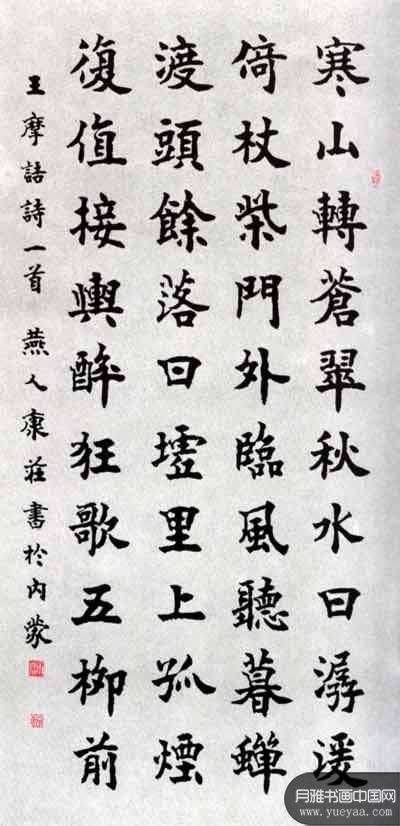 寒山轉蒼翠秋水日潺湲
倚杖柴門外臨風聽暮蟬
渡頭餘落日墟里上孤煙
復值接輿醉狂歌五柳前
王摩詰詩一首 燕人康莊書於内蒙
月雅书画中国网
www.yueyaa.com